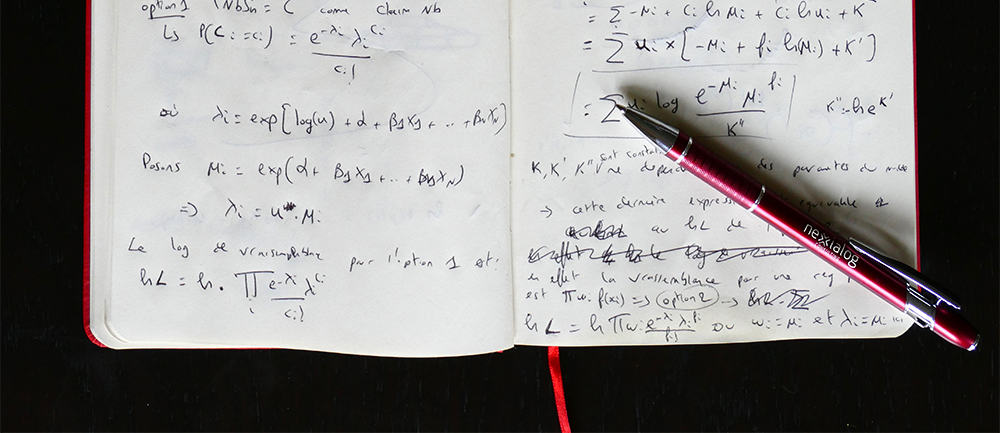 option 1 (NbSn = C come Claim Nb
Ls P(Ci = ci) = e^-λi λi^ci / ci!
où λi = exp[log(u) + α + β1X1 + ... + βNXN]
Posons Mi = exp(α + β1X1 + ... + βNXN)
=> λi = u . Mi
Le log de vraisemblance pour l'option 1 est :
ln L = ln . ∏i e^-λi λ^ci / ci!
= Σ -Mi + Ci ln Mi + Ci ln ui + K
= Σ ui × [-Mi + fi ln(Mi) + K']
= Σ ui log e^-Mi Mi^fi / K'' K'' = ln e^K'
K, K', K'' sont constantes ne des du
→ cette dernière équivalente
au ln L de
en effet la vraisemblance pour une reg
est ∏ wi f(xi) => option 2 →
ln L = ln ∏ wi e^-λi λi^fi / fi! où wi = Mi et λi = Mi ici
nexialog